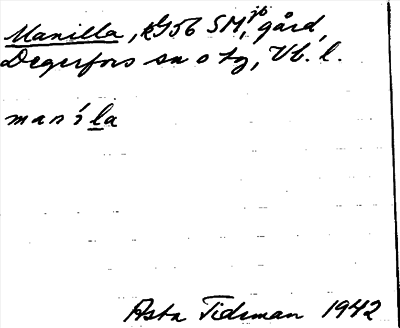 Manilla, kG56 SM, jb gård,
Degerfors sn o tg, Vb. l.
maníla
Asta Tidsman 1942